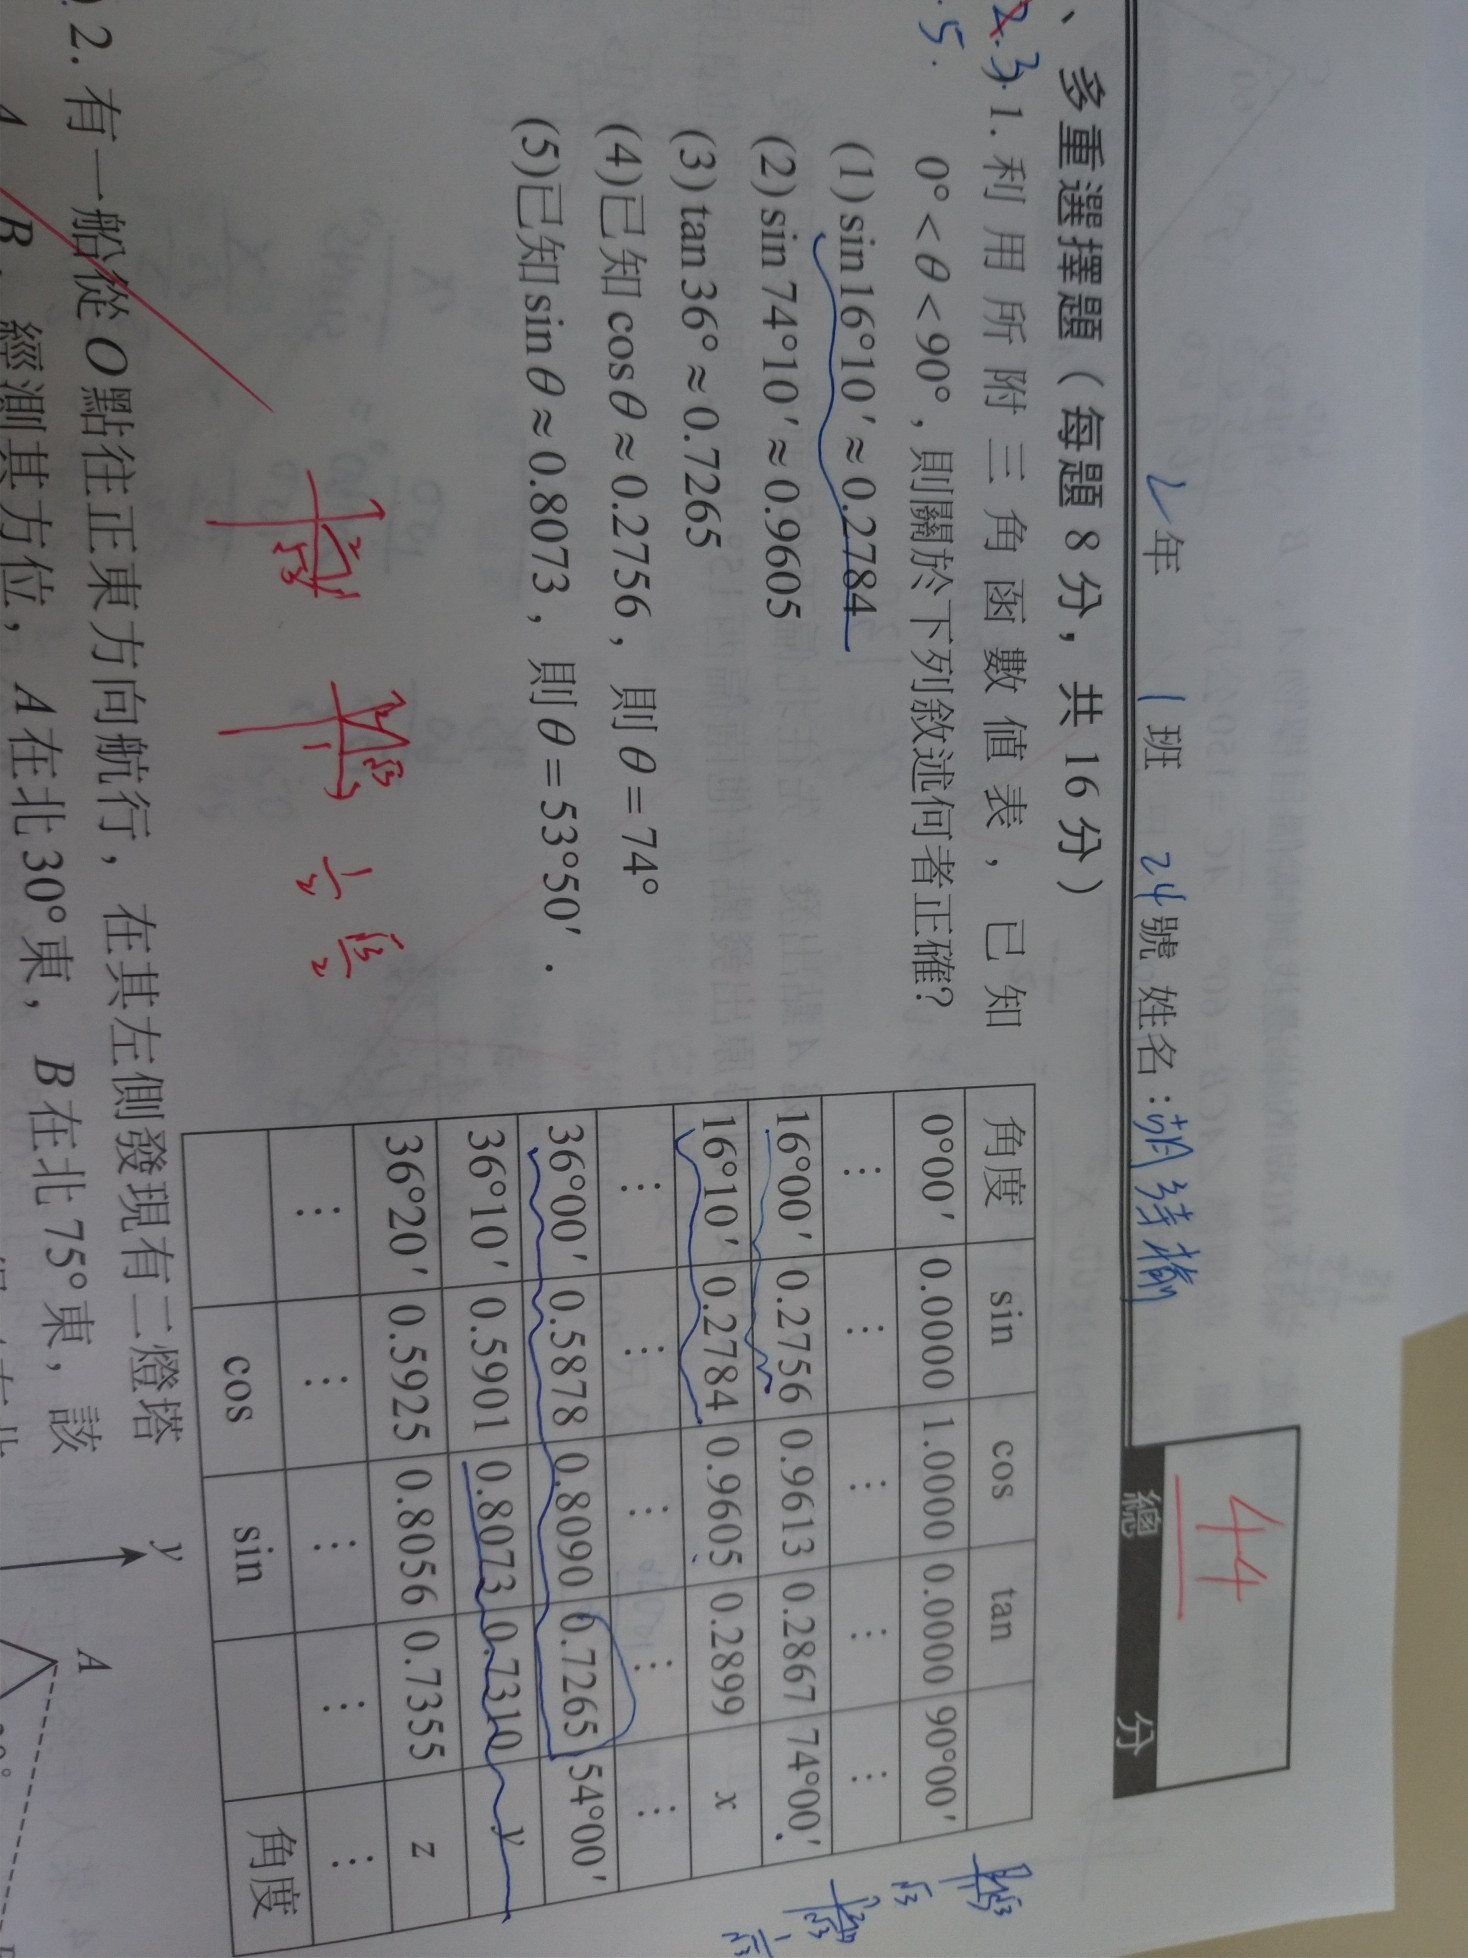 2年 1班 24號 姓名：
44
總 分
、多重選擇題（每題 8 分，共 16 分）
2.3
.5.
1.利用所附三角函數值表，已知
0°<θ<90°，則關於下列敘述何者正確？
(1)sin16°10′≈0.2784
(2)sin74°10′≈0.9605
(3)tan36°≈0.7265
(4)已知cosθ≈0.2756，則θ=74°
(5)已知sinθ≈0.8073，則θ=53°50′．
角度 sin cos tan
0°00′ 0.0000 1.0000 0.0000 90°00′
⋮ ⋮ ⋮ ⋮ ⋮
16°00′ 0.2756 0.9613 0.2867 74°00′
16°10′ 0.2784 0.9605 0.2899 x
⋮ ⋮ ⋮ ⋮ ⋮
36°00′ 0.5878 0.8090 0.7265 54°00′
36°10′ 0.5901 0.8073 0.7310 y
36°20′ 0.5925 0.8056 0.7355 z
⋮ ⋮ ⋮ ⋮ ⋮
cos sin 角度
2 1 √3
2 √3 1
1/2 √3/2
√3
1/√3
2.有一船從O點往正東方向航行，在其左側發現有二燈塔
A、B，經測其方位，A在北30°東，B在北75°東，該
y
A